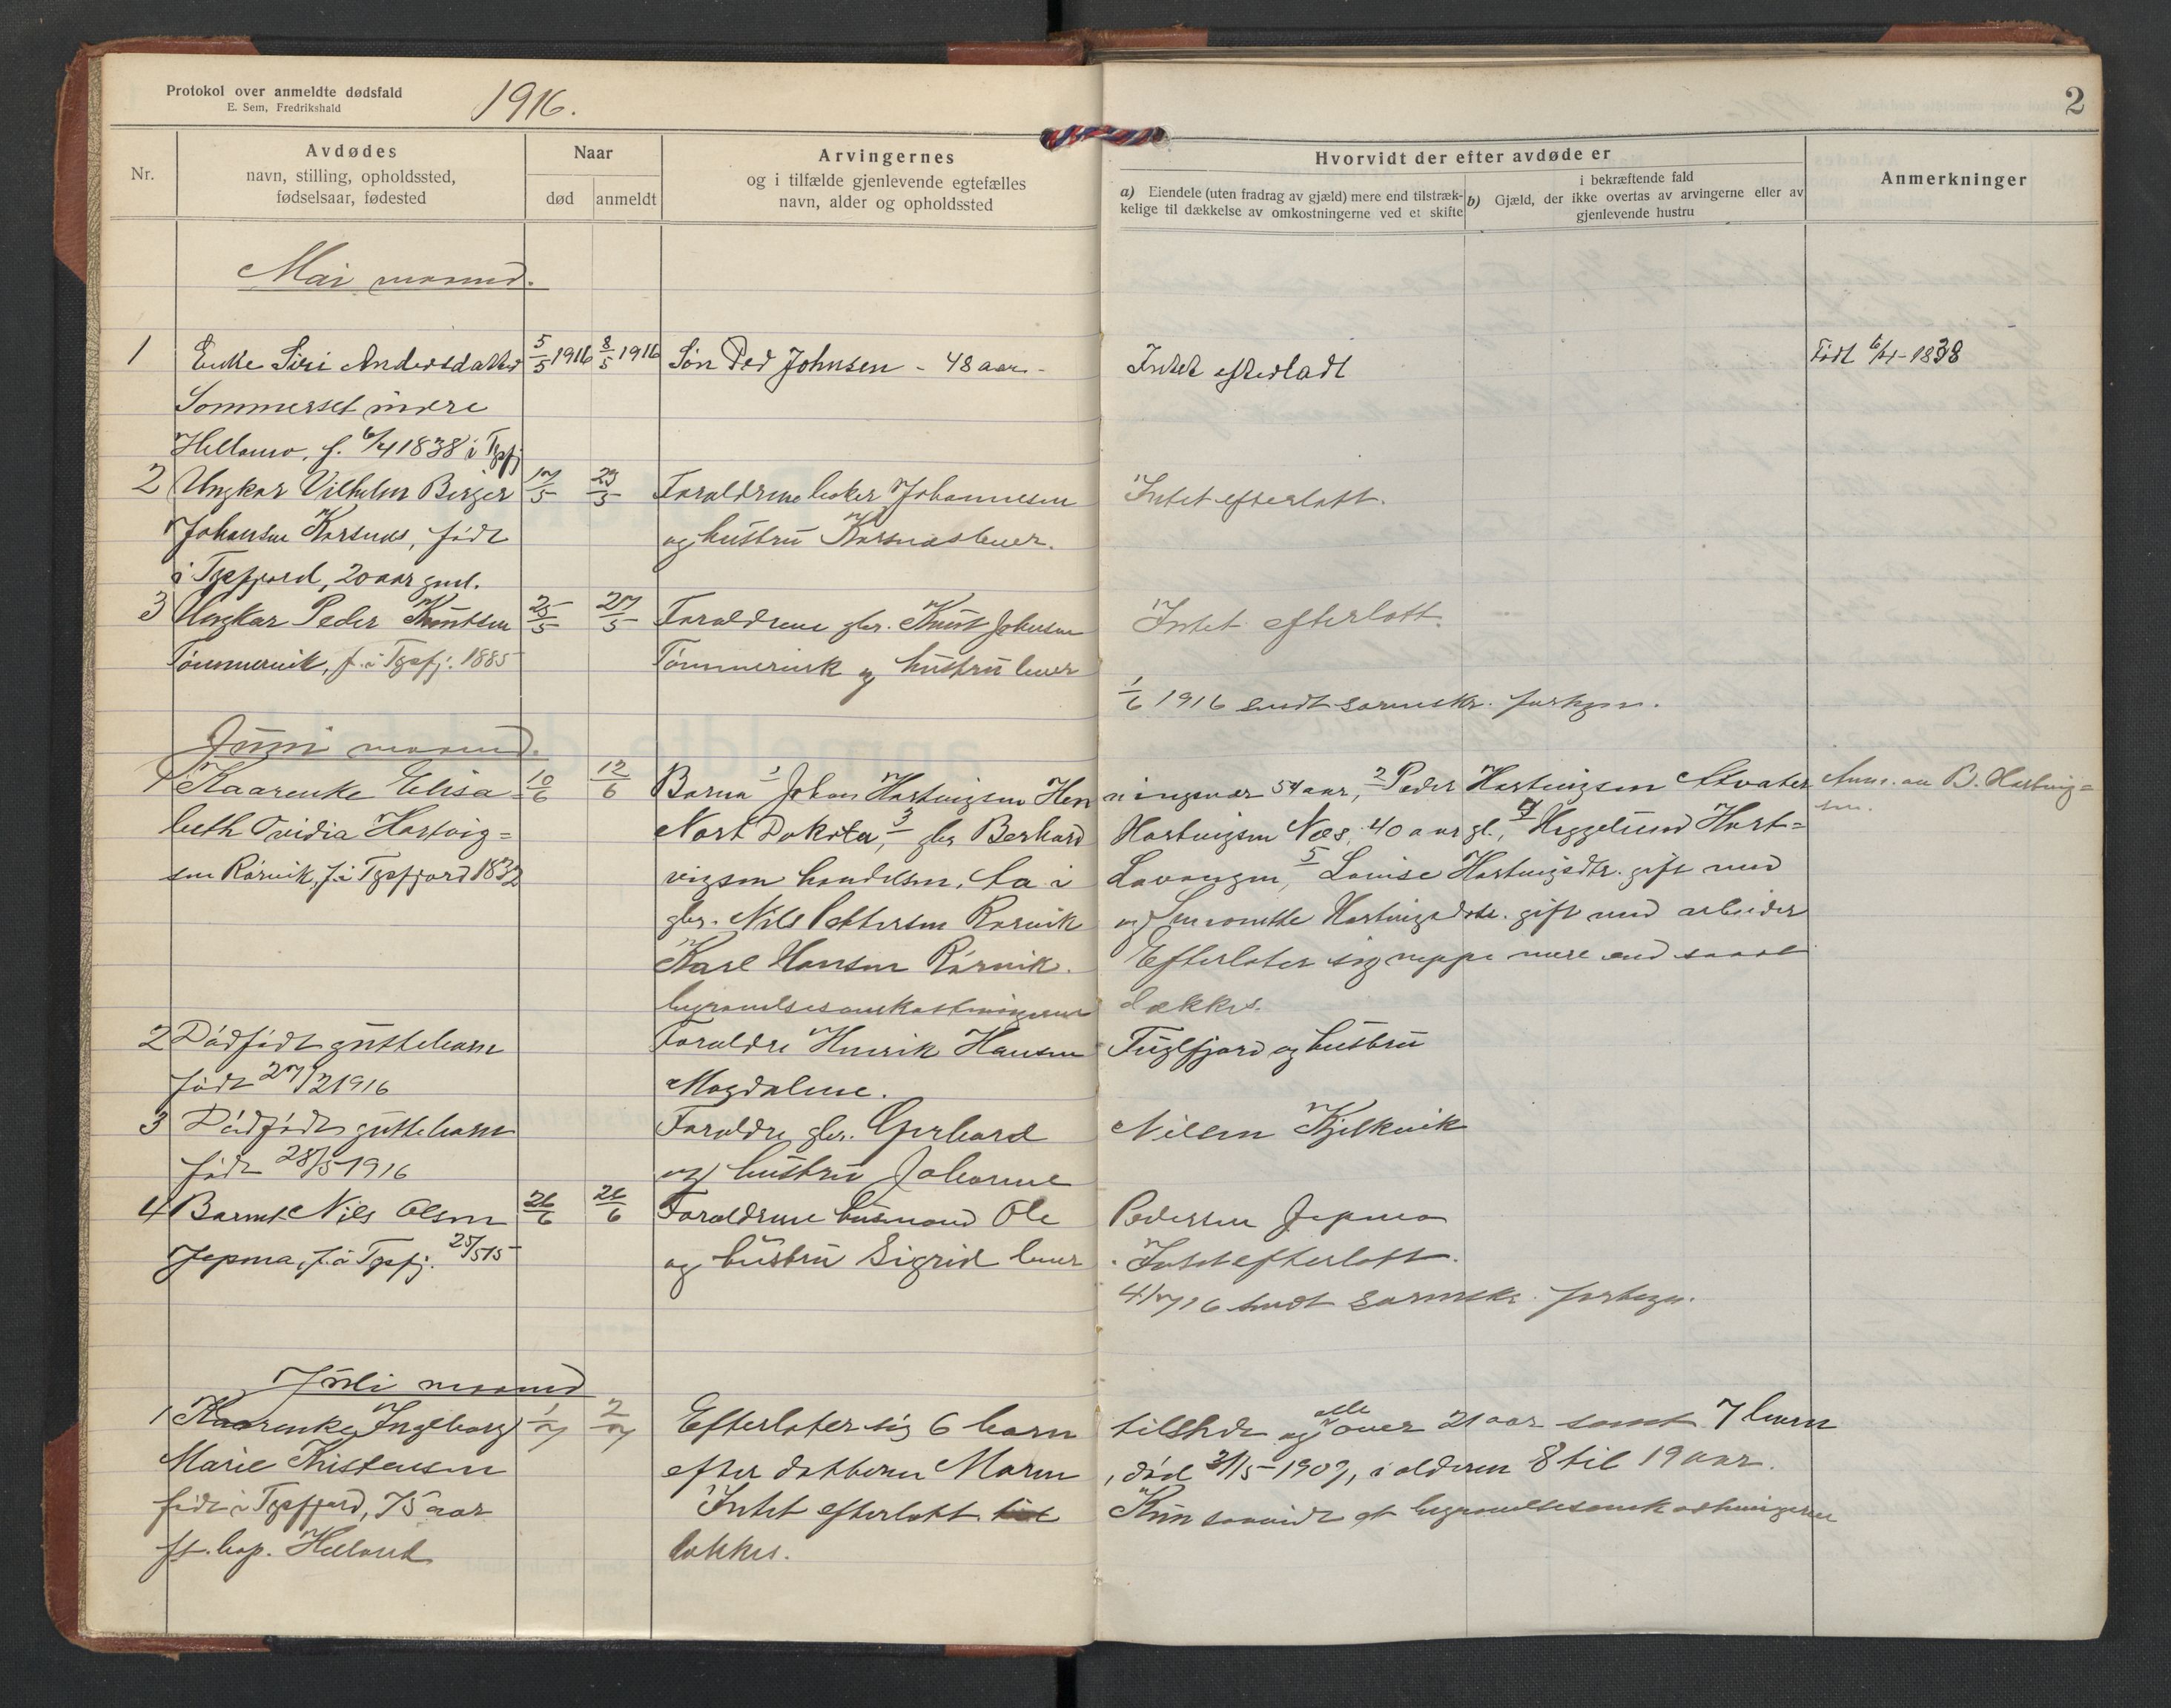 Protokol over anmeldte dødsfald
E. Sem, Fredrikshald
1916.
2
Nr.
Avdødes
navn, stilling, opholdssted,
fødselsaar, fødested
Naar
død
anmeldt
Arvingernes
og i tilfælde gjenlevende egtefælles
navn, alder og opholdssted
Hvorvidt der efter avdøde er
a) Eiendele (uten fradrag av gjæld) mere end tilstræk-
kelige til dækkelse av omkostningerne ved et skifte
i bekræftende fald
b) Gjæld, der ikke overtas av arvingerne eller av
gjenlevende hustru
Anmerkninger
Mai maaned.
1 Enke Siri Andersdatter 5/5 1916 8/5 1916 Søn Ped Johnsen - 48 aar - Intet efterladt Født 6/4-1838
Sommerset indre
Hellemo, f. 6/4 1838 i Tysfj
2 Ungkar Vilhelm Berger 17/5 23/5 Forældrene Johannesen Intet efterlatt.
Johansen Korsnes, født og hustru Korsnes lever.
i Tysfjord, 20 aar gml.
3 Ungkar Peder Knutsen 25/5 27/5 Forældrene gbr. Knut Johnsen Intet efterlatt.
Tømmervik, f. i Tysfj. 1885 Tømmervik og hustru lever
1/6 1916 sendt sorenskr. fortegn.
Juni maaned.
1 Kaarenke Elisa- 10/6 12/6 Barna 1 Johan Hartvigsen Hen ningsvær 54 aar, 2 Peder Hartvigsen Anm. av B. Hartvig=
beth Ovidia Hartvig= Nort Dakota, 3 gbr Berhard Hartvigsen Næs, 40 aar gl., 4 Heggelund Hart= sen.
sen Rørvik, f. i Tysfjord 1832 vigsen handelsm. i Lavangen, 5 Lovise Hartvigsdtr. gift med
gbr. Nils Pettersen Rørvik og Hartvigsdtr. gift med arbeider
Karl Hansen Rørvik. Efterlater sig neppe mere end saa at
begravelsesomkostningerne dækkes.
2 Dødfødt guttebarn Forældre Henrik Hansen Fuglfjord og hustru
født 27/2 1916 Magdalene.
3 Dødfødt guttebarn Forældre gbr. Gerhard Nilsen Kjelkvik
født 28/5 1916 og hustru Johanne
4 Barnet Nils Olsen 26/6 26/6 Forældrene husmand Ole Pedersen Jepma
Jepma, f. i Tysfj. 25/5 15 og hustru Sigrid lever. Intet efterlatt.
4/7 16 sendt sorenskr. fortegn.
Juli maaned
1 Kaarenke Ingeborg 1/7 2/7 Efterlater sig 6 barn tilstede og alle over 21 aar samt 7 barn
Marie Kristensen efter datteren Maren, død 31/5-1909, i alderen 8 til 19 aar.
født i Tysfjord, 75 aar Intet efterlatt. Kun saavidt at begravelsesomkostningerne
Helland dækkes.